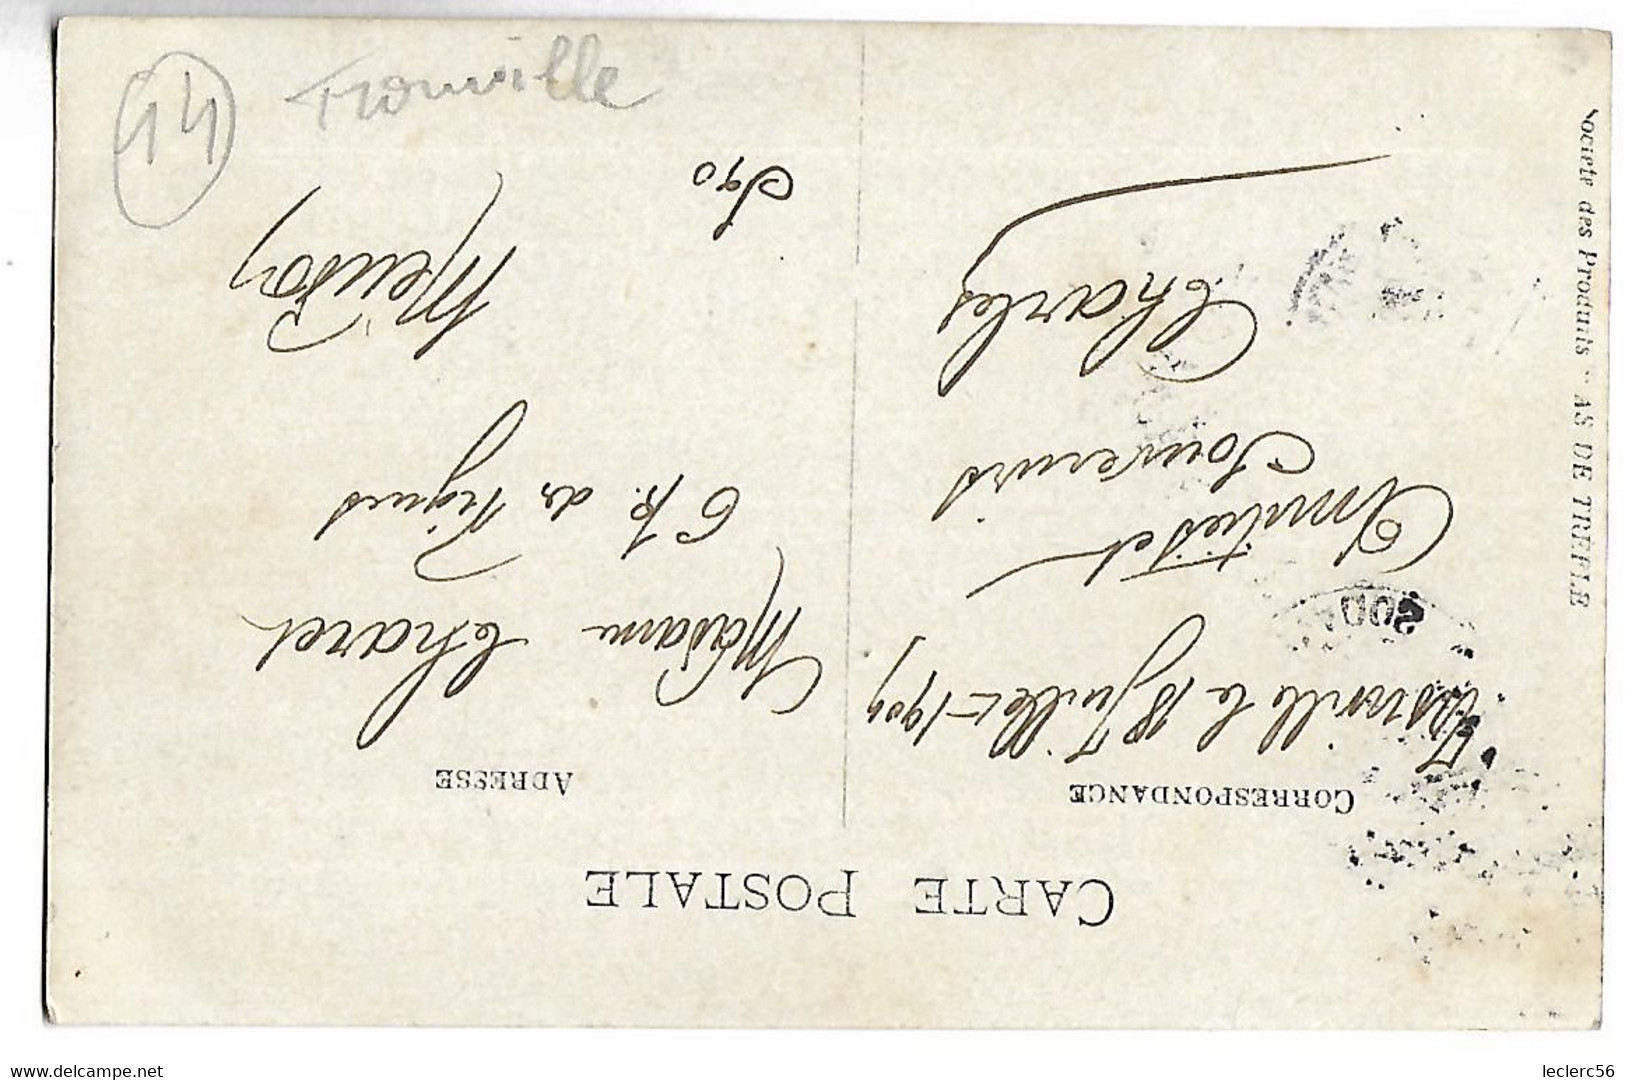 CARTE POSTALE
CORRESPONDANCE
Trouville le 18 Juillet 1909
Amitiés et
Souvenirs
Charles
ADRESSE
Madame Charel
6 R. des Vignes
Meudon
S90
14 Trouville
Société des Produits "AS DE TREFLE
www.delcampe.net
leclerc56